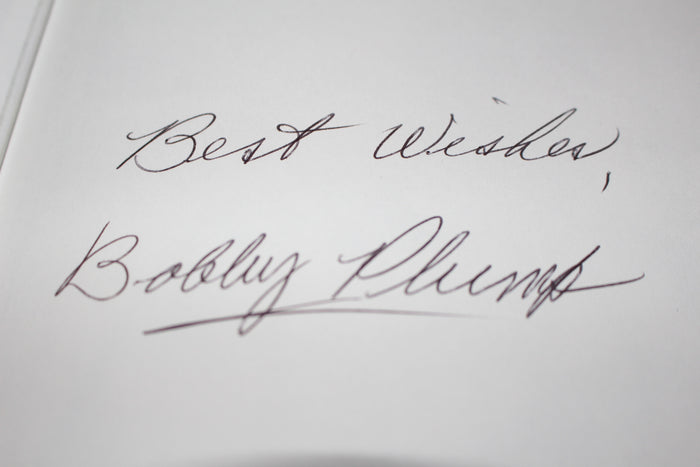 Best Wishes,
Bobby Plump